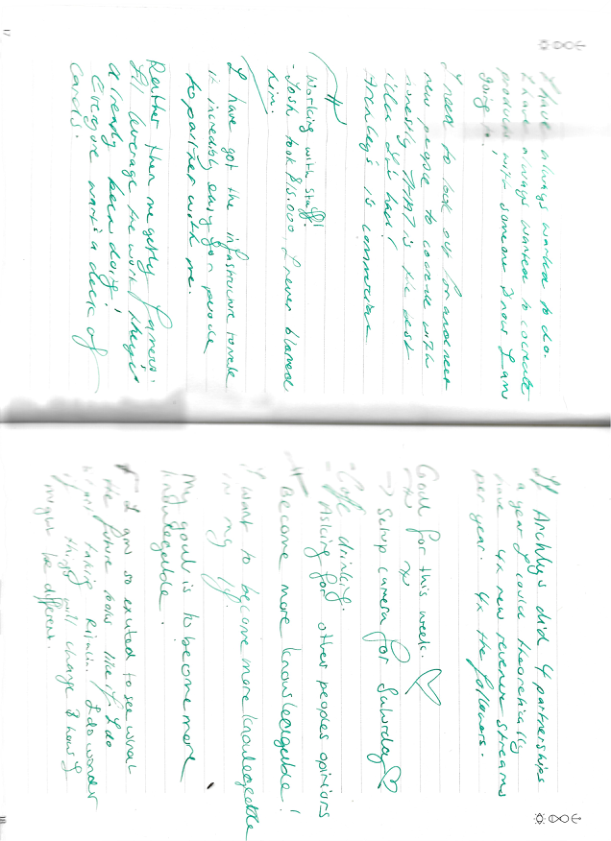 I have always wanted to do.
I have always wanted to cocreate
products with someone I now I am
going to.
I need to look out for another
new people to cocreate with
honestly THAT is the best
idea I've had!
Archleys is commercial
Working with staff!
- Josh took $15,000, I never blamed
him.
I have got the infrastructure to make
it incredibly easy for people
to partner with me.
Rather than me getting famous.
I'll leverage the work they've
already been doing!
Everyone wants a deck of
cards.
If Archleys did 4 partnerships
a year you could theoretically
have 4x new revenue streams
per year. 4x the followers.
Goal for this week.
→ Setup camera for Saturday
- Cafe drinking.
- Asking for other peoples opinions
Become more knowledgable!
I want to become more knowledgeable
in my
My goal is to become more
knowledgable.
I am so excited to see what
the future looks like if I do
start taking Ritalin. I do wonder
if things will change & how I
might be different.